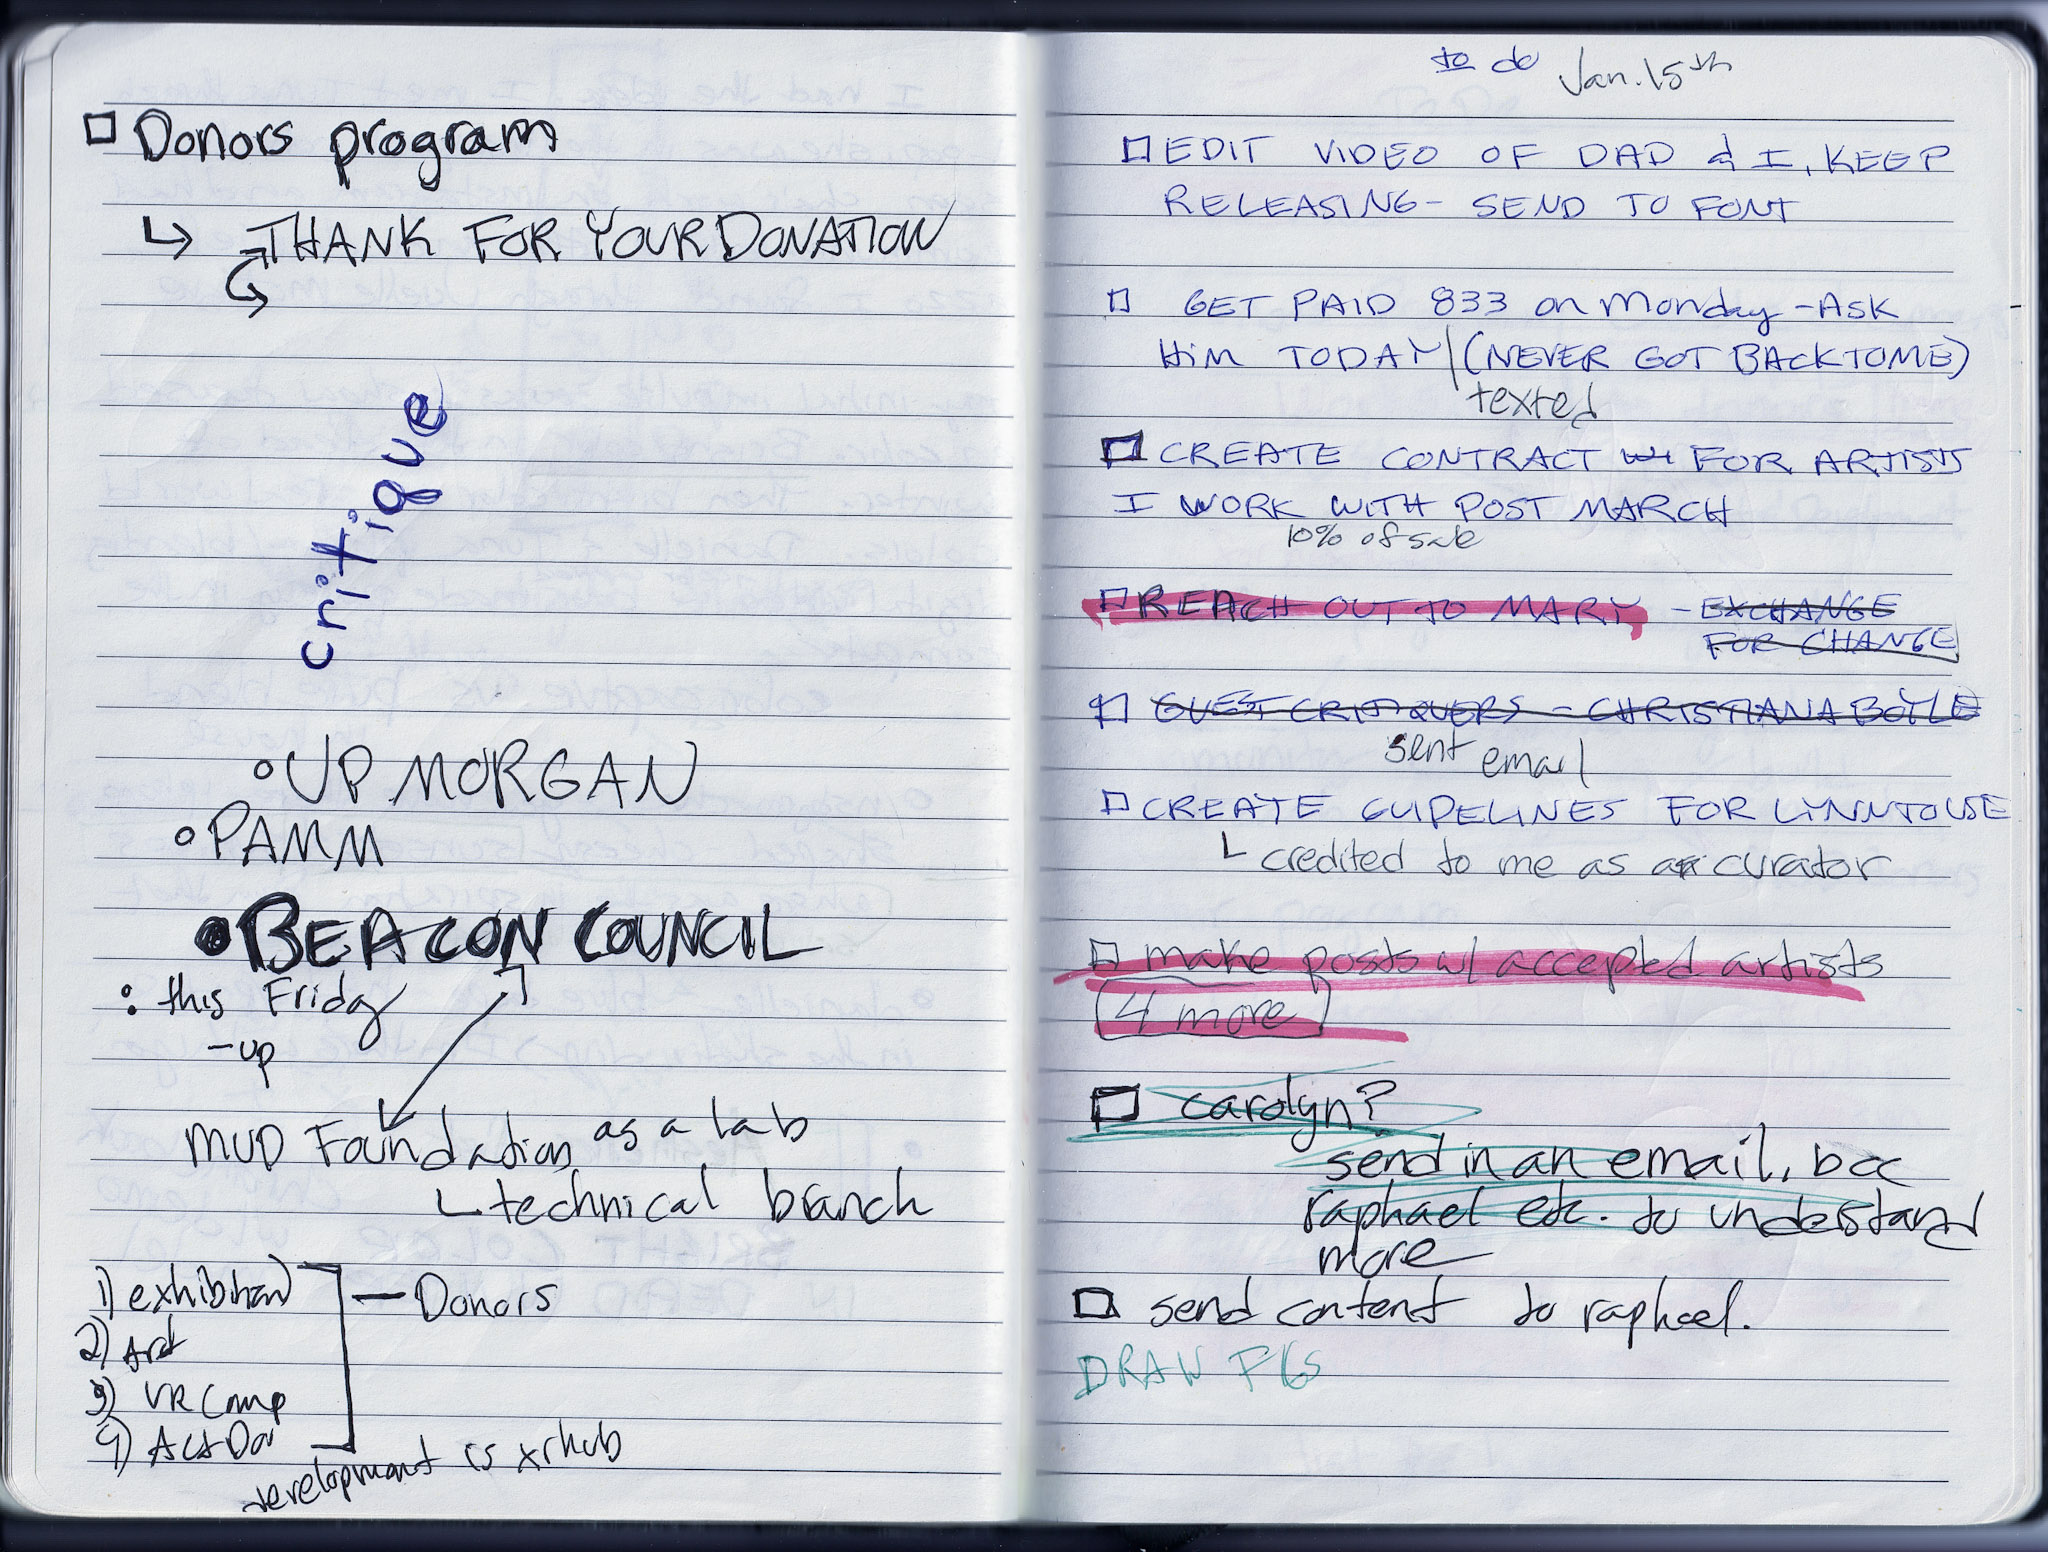 Donors program
THANK FOR YOUR DONATION
critique
UP MORGAN
PAMM
BEACON COUNCIL
this Friday
-up
MUD Foundation as a lab
technical branch
1) exhibition
- Donors
2) Art
3) VR Comp
4)
development is xrhub
to do Jan. 15th
EDIT VIDEO OF DAD & I, KEEP
RELEASING - SEND TO FONT
GET PAID 833 on Monday - ASK
HIM TODAY / (NEVER GOT BACK TO ME)
texted
CREATE CONTRACT FOR ARTISTS
I WORK WITH POST MARCH
10% of sale
REACH OUT TO MARY - EXCHANGE
FOR CHANGE
GUEST CRITIQUERS - CHRISTIANA BOYLE
sent email
CREATE GUIDELINES FOR
credited to me as a curator
make posts w/ accepted artists
4 more
carolyn?
send in an email, bcc
raphael etc. to understand
more
send content to raphael.
DRAW